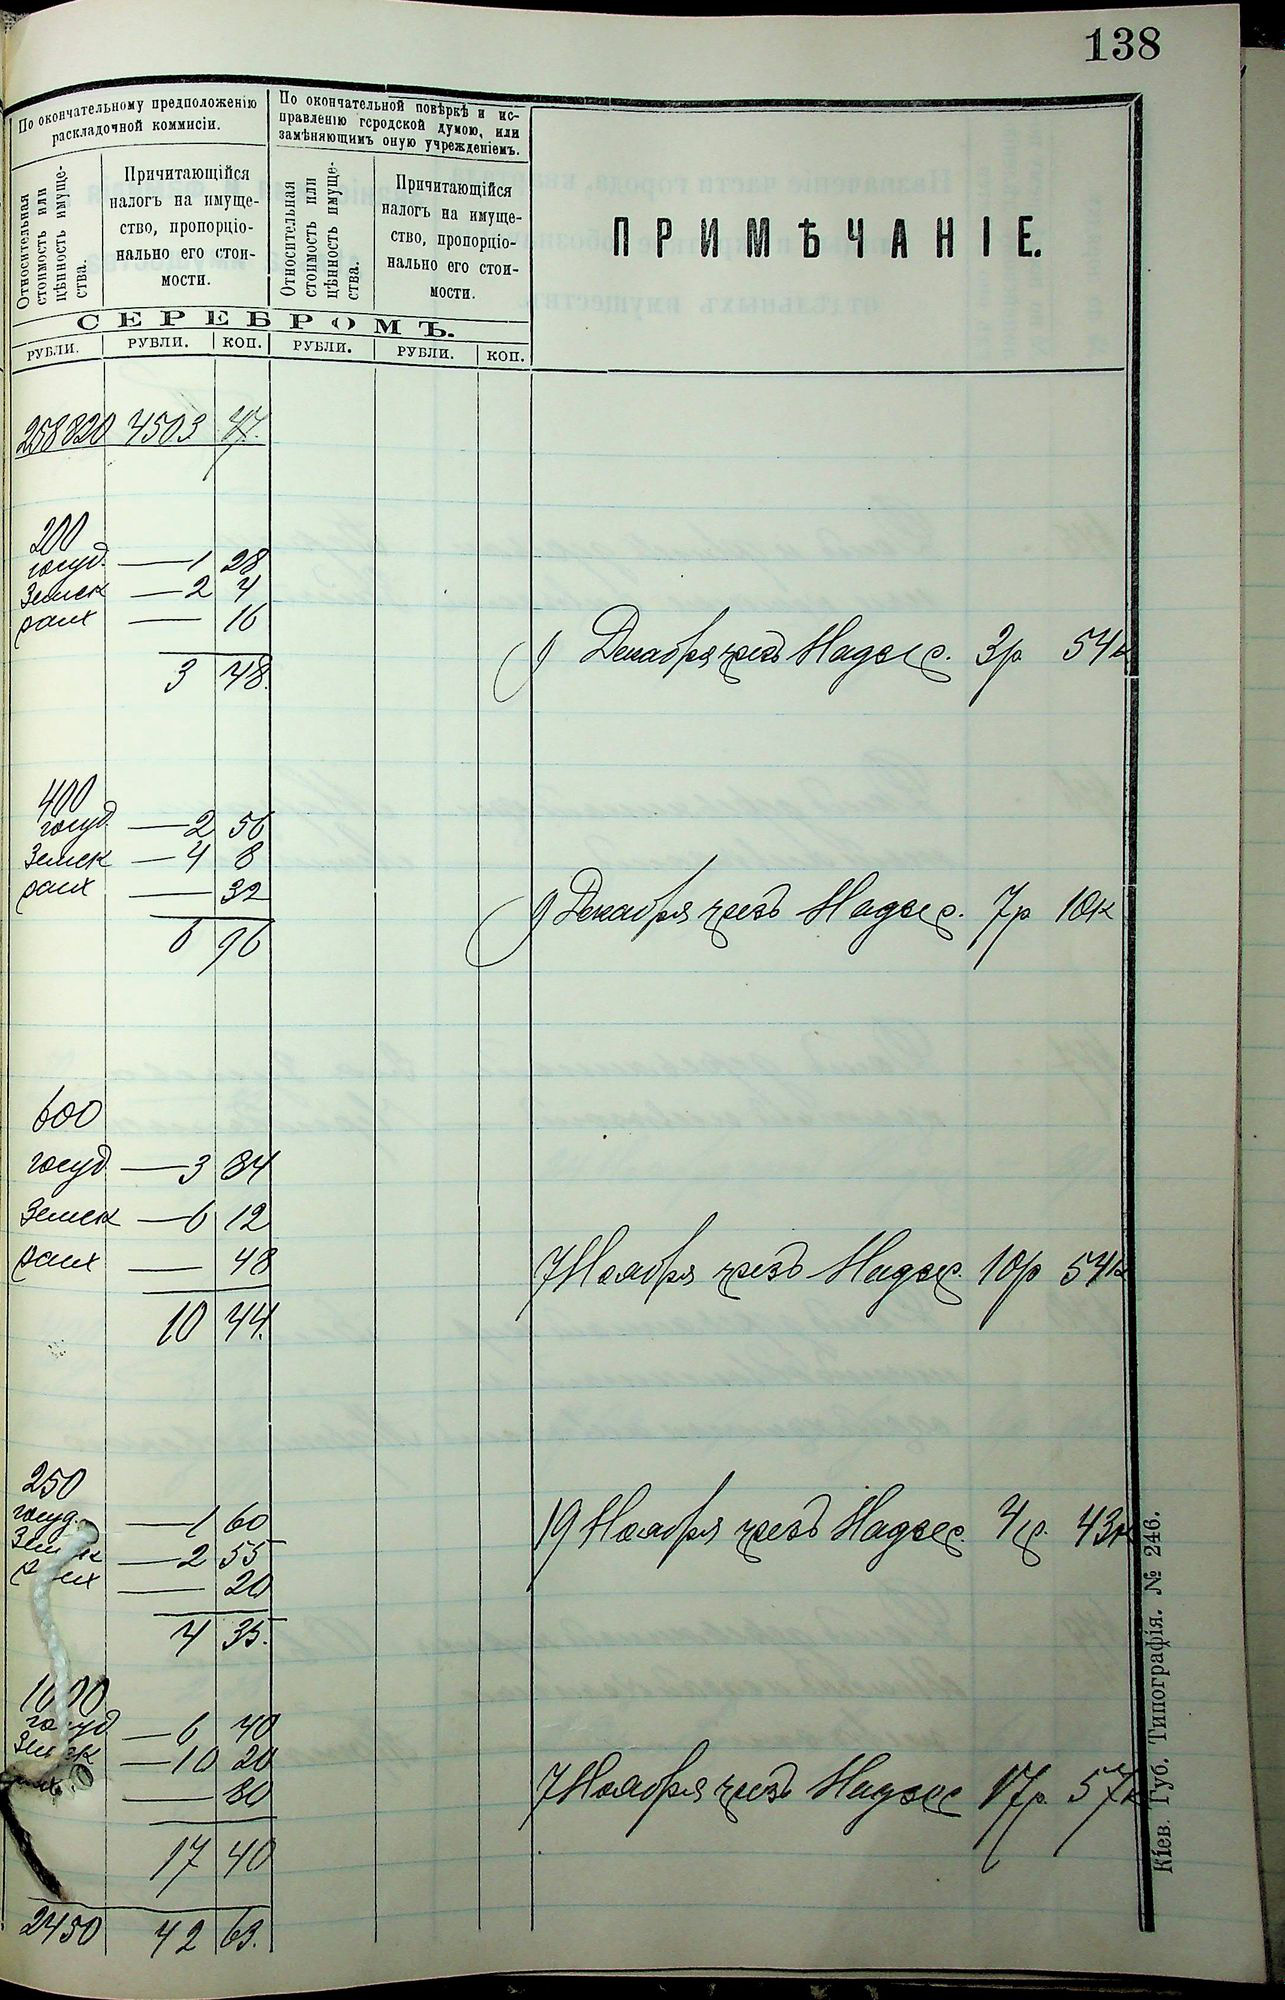 138
По окончательному предположенію
раскладочной коммисіи.
По окончательной повѣркѣ и ис-
правленію городской думою, или
замѣняющимъ оную учрежденіемъ.
Относительная
стоимость или
цѣнность имуще-
ства.
Причитающійся
налогъ на имуще-
ство, пропорціо-
нально его стои-
мости.
Относительная
стоимость или
цѣнность имуще-
ства.
Причитающійся
налогъ на имуще-
ство, пропорціо-
нально его стои-
мости.
ПРИМѢЧАНІЕ.
СЕРЕБРОМЪ.
РУБЛИ. РУБЛИ. КОП. РУБЛИ. РУБЛИ. КОП.
258820 4503 47.
200
госуд. — 1 28
Земск — 2 4
— 16
3 48.
9 Декабря чрезъ Надзер. 3р 54к
400
госуд — 2 56
Земск — 4 8
— 32
6 96
9 Декабря чрезъ Надзер. 7р 10к
600
госуд — 3 84
Земск — 6 12
— 48
10 44.
7 Ноября чрезъ Надзер. 10р 54к
250
госуд. — 1 60
Земск — 2 55
— 20
4 35.
19 Ноября чрезъ Надзер. 4р. 43к
1000
госуд — 6 40
Земск — 10 20
— 80
17 40
7 Ноября чрезъ Надзер 17р. 57к
2450 42 63.
Кіев. Губ. Типографія. № 246.